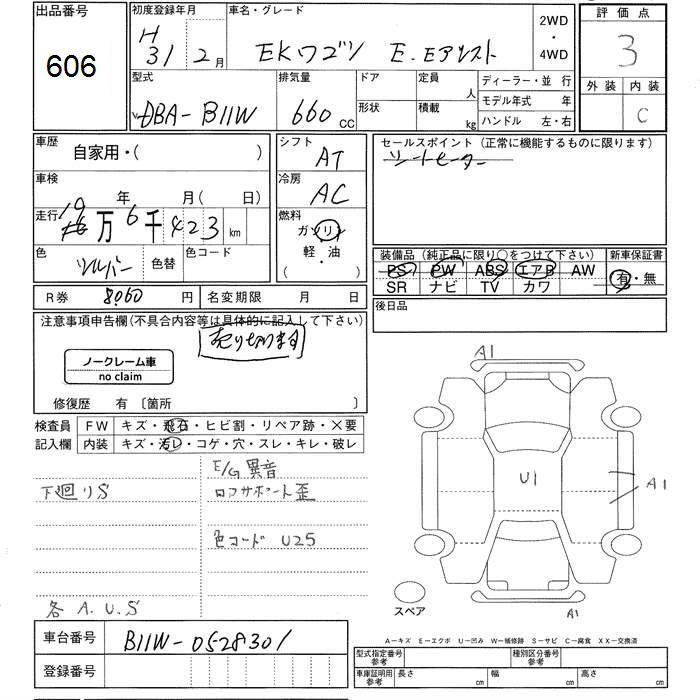 出品番号 初度登録年月 車名・グレード 評価点
606
H31 2月 EKワゴン E.Eアシスト 2WD・4WD 3
外装 内装
C
型式 排気量 ドア 定員 人 ディーラー・並行
DBA-B11W 660CC 形状 積載 kg モデル年式 年
ハンドル 左・右
車歴 自家用・( ) シフト AT セールスポイント (正常に機能するものに限ります)
シートヒーター
車検 年 月(日) 冷房 AC
走行 19万6千423km 燃料 ガソリン 軽・油 ・
色 シルバー 色替 色コード
装備品 (純正品に限り○をつけて下さい) 新車保証書
PS PW ABS エアB AW 有・無
SR ナビ TV カワ
R券 8060円 名変期限 月 日
後日品
注意事項申告欄(不具合内容等は具体的に記入して下さい)
売り切ります
ノークレーム車
no claim
修復歴 有 〔箇所 〕
検査員 FW キズ・飛石・ヒビ割・リペア跡・×要
記入欄 内装 キズ・汚レ・コゲ・穴・スレ・キレ・破レ
A1
E/G異音
下廻りS ロアサポート歪
U1
A1
色コード U25
各 A.U.S
スペア
A1
A−キズ E−エクボ U−凹み W−補修跡 S−サビ C−腐食 XX−交換済
車台番号 B11W-0528301
型式指定番号 参考 種別区分番号 参考
登録番号
車庫証明用 参考 長さ cm 幅 cm 高さ cm